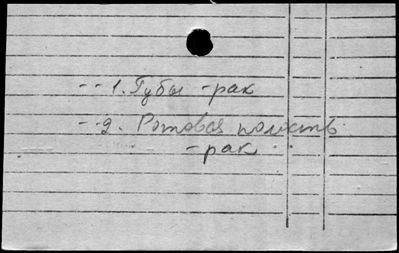 - - 1. Губы - рак
- - 2. Ротовая полость
- рак